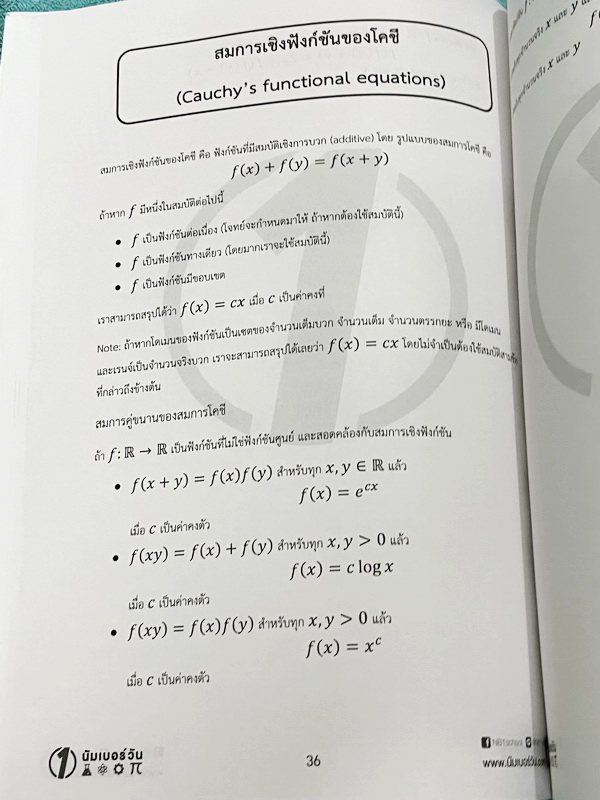 สมการเชิงฟังก์ชันของโคชี
(Cauchy's functional equations)
สมการเชิงฟังก์ชันของโคชี คือ ฟังก์ชันที่มีสมบัติเชิงการบวก (additive) โดย รูปแบบของสมการโคชี คือ
f(x) + f(y) = f(x + y)
ถ้าหาก f มีหนึ่งในสมบัติต่อไปนี้
• f เป็นฟังก์ชันต่อเนื่อง (โจทย์จะกำหนดมาให้ ถ้าหากต้องใช้สมบัตินี้)
• f เป็นฟังก์ชันทางเดียว (โดยมากเราจะใช้สมบัตินี้)
• f เป็นฟังก์ชันมีขอบเขต
เราสามารถสรุปได้ว่า f(x) = cx เมื่อ c เป็นค่าคงที่
Note: ถ้าหากโดเมนของฟังก์ชันเป็นเซตของจำนวนเต็มบวก จำนวนเต็ม จำนวนตรรกยะ หรือ มีโดเมน
และเรนจ์เป็นจำนวนจริงบวก เราจะสามารถสรุปได้เลยว่า f(x) = cx โดยไม่จำเป็นต้องใช้สมบัติสามข้อ
ที่กล่าวถึงข้างต้น
สมการคู่ขนานของสมการโคชี
ถ้า f: ℝ → ℝ เป็นฟังก์ชันที่ไม่ใช่ฟังก์ชันศูนย์ และสอดคล้องกับสมการเชิงฟังก์ชัน
• f(x + y) = f(x)f(y) สำหรับทุก x, y ∈ ℝ แล้ว
f(x) = e^{cx}
เมื่อ c เป็นค่าคงตัว
• f(xy) = f(x) + f(y) สำหรับทุก x, y > 0 แล้ว
f(x) = c log x
เมื่อ c เป็นค่าคงตัว
• f(xy) = f(x)f(y) สำหรับทุก x, y > 0 แล้ว
f(x) = x^c
เมื่อ c เป็นค่าคงตัว
1 นัมเบอร์วัน
π
36
NB1school
www.นัมเบอร์วัน
x และ y
x และ y